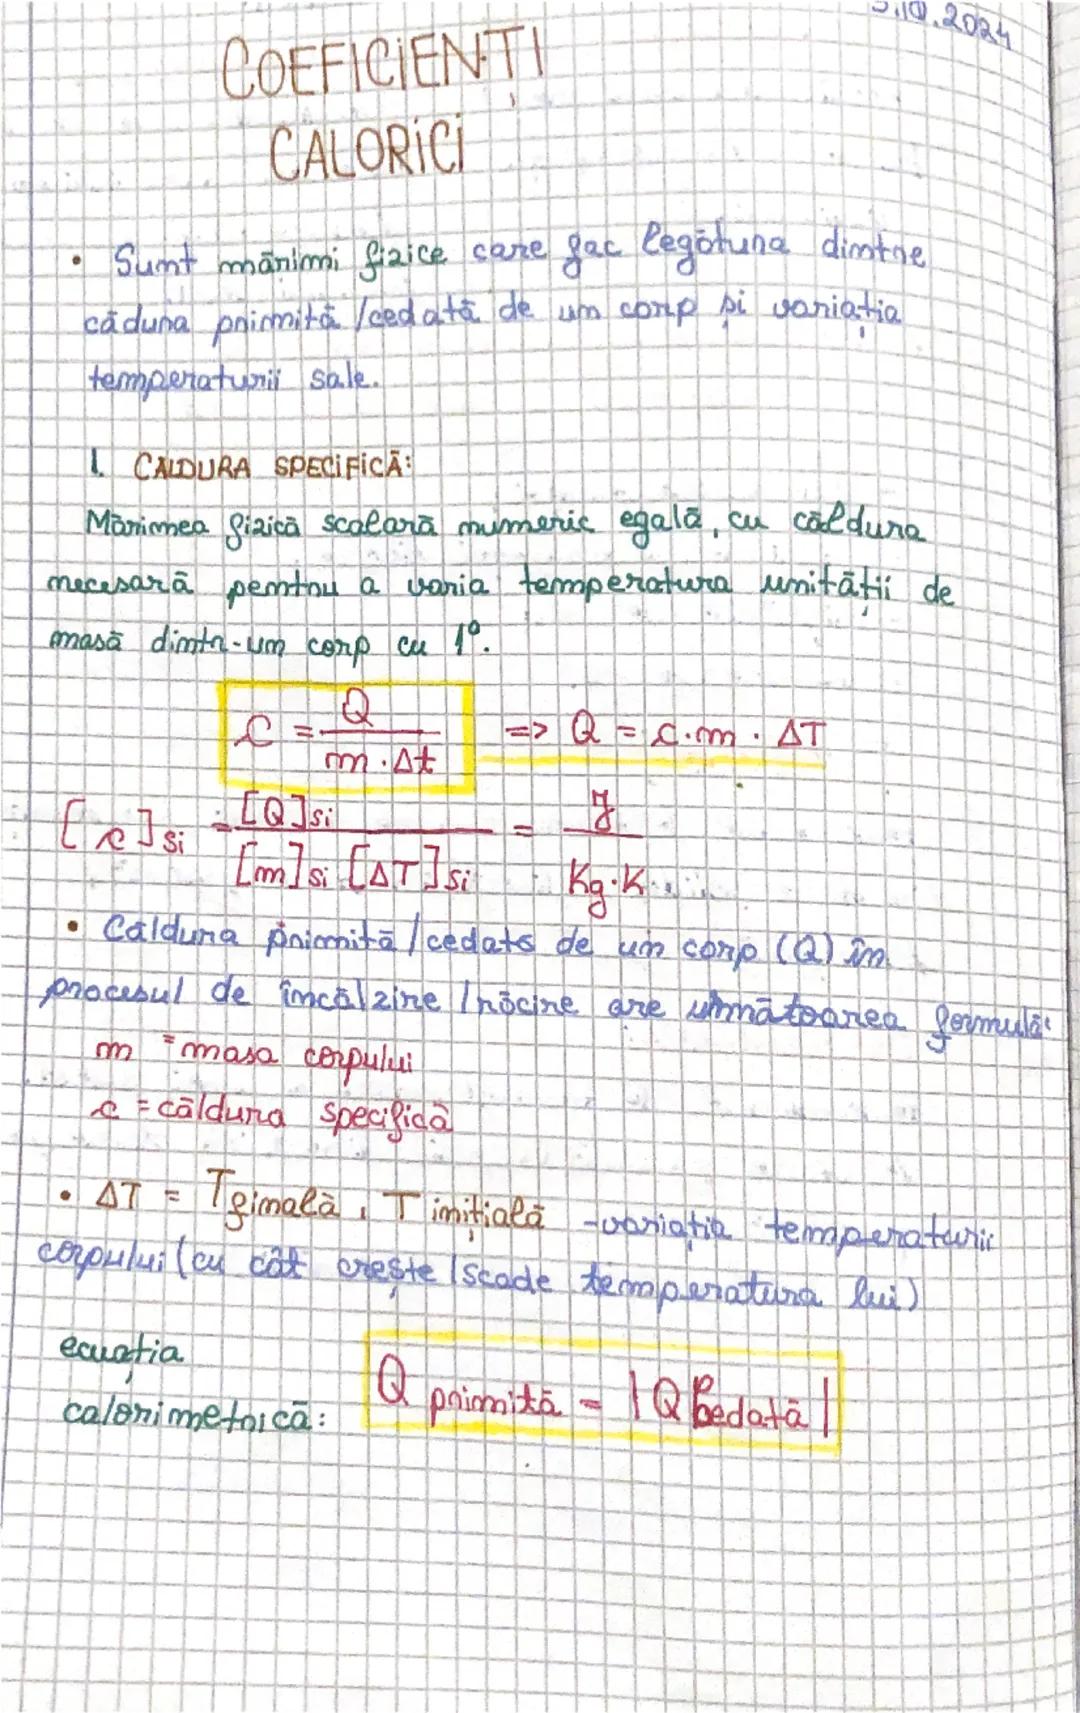 .10.2024
COEFICIENȚI
CALORICI
• Sunt mărimi fizice care fac legătura dintre
căldura primită /cedată de un corp și variația
temperaturii sale.
1. CĂLDURA SPECIFICĂ:
Mărimea fizică scalară numeric egală, cu căldura
necesară pentru a varia temperatura unității de
masă dintr-un corp cu 1°.
c = Q / m · Δt => Q = c · m · ΔT
[c]si = [Q]si / [m]si [ΔT]si = J / Kg·K
• Căldura primită / cedată de un corp (Q) în
procesul de încălzire /răcire are următoarea formulă:
m = masa corpului
c = căldura specifică
• ΔT = T finală, T inițială - variația temperaturii
corpului (cu cât crește /scade temperatura lui)
ecuația
calorimetrică: Q primită = |Q cedată|